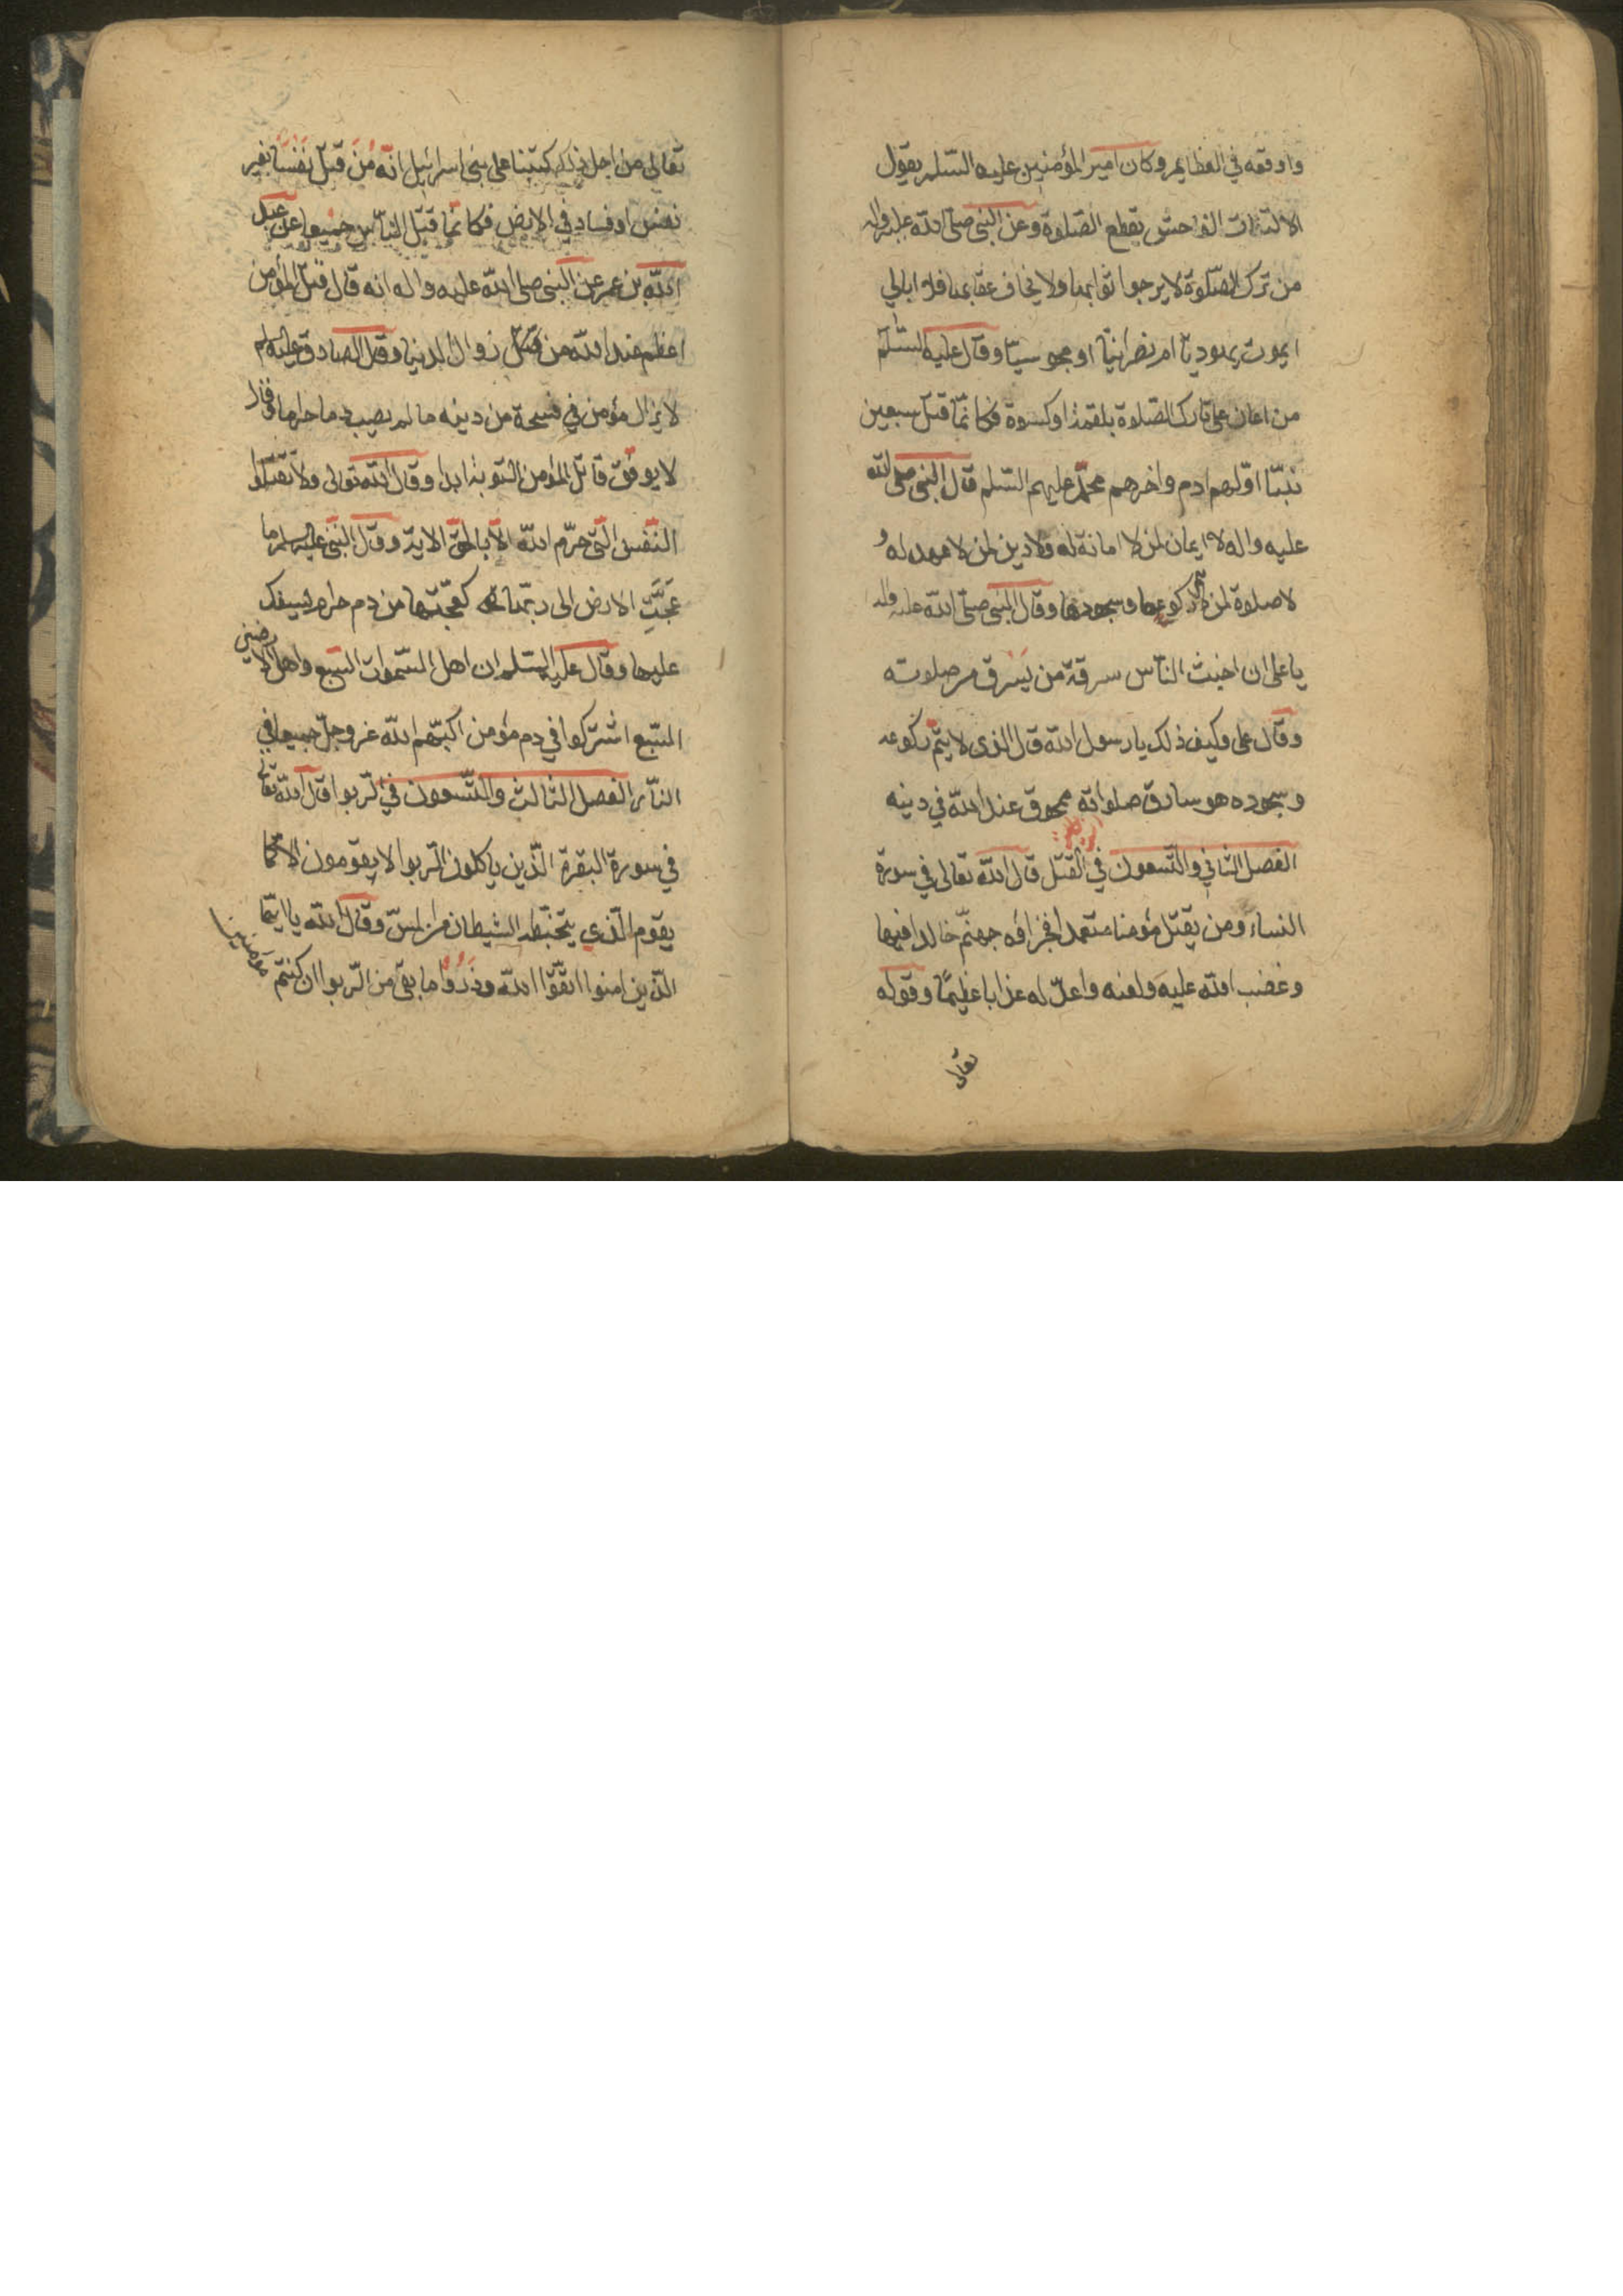 واوقعه في العظايم وكان امير المؤمنين عليه السّلم يقول
الالتفات الفاحش يقطع الصّلوة وعن النبى صلّى اللّه عليه واله
من ترك الصّلوة لا يرجوا ثوابها ولا يخاف عقابها فلا ابالي
ايموت يهوديّا ام نصرانيّا او مجوسيّا وقال عليه السّلم
من اعان على تارك الصّلوة بلقمة اوكسوة فكانّما قتل سبعين
نبيّا اوّلهم ادم واخرهم محمّد عليهم السّلم قال النبى صلى اللّه
عليه واله لا ايمان لمن لا امانة له ولا دين لمن لا عهد له و
لا صلوة لمن لا يتم ركوعها وسجودها وقال النبى صلّى اللّه عليه واله
يا على ان اخبث النّاس سرقة من يسرق من صلوته
وقال على وكيف ذلك يا رسول اللّه قال الذى لا يتمّ ركوعه
وسجوده هو سارق صلواته ممحوق عند اللّه في دينه
الفصل الثاني والتّسعون في القتل قال اللّه تعالى في سورة
النساء ومن يقتل مؤمنا متعمدا فجزاؤه جهنّم خالدا فيها
وغضب اللّه عليه ولعنه واعدّ له عذابا عظيمًا وقوله
تعالى
تعالى من اجل ذلك كتبنا على بنى اسرائيل انّه مَن قتل نفسًا بغير
نفس او فساد في الارض فكانّما قتل النّاس جميعا عن عبد
اللّه بن عمر عن النبى صلى اللّه عليه واله انه قال قتل المؤمن
اعظم عند اللّه من زوال الدنيا وقال الصادق عليه السلم
لا يزال مؤمن في فسحة من دينه ما لم يصيب دما حراما وقال
لا يوفق قاتل المؤمن التوبة ابدا وقال اللّه تعالى ولا تقتلوا
النّفس الّتى حرّم اللّه الّا بالحقّ الاية وقال النبىّ عليه السلم ما
عجّت الارض الى ربّها كعجّتها من دم حرام يسفك
عليها وقال عليه السّلم ان اهل السّموات السّبع واهل الارضين
السّبع اشتركوا في دم مؤمن اكبّهم اللّه عزوجلّ جميعا في
النّار الفصل الثالث والتّسعون في الرّبوا قال اللّه تعالى
في سورة البقرة الّذين ياكلون الرّبوا لا يقومون الّا كما
يقوم الّذي يتخبّطه الشيطان من المسّ وقال اللّه يا ايّها
الّذين امنوا اتّقوا اللّه وذَرُوا ما بقى من الرّبوا ان كنتم
مؤمنين